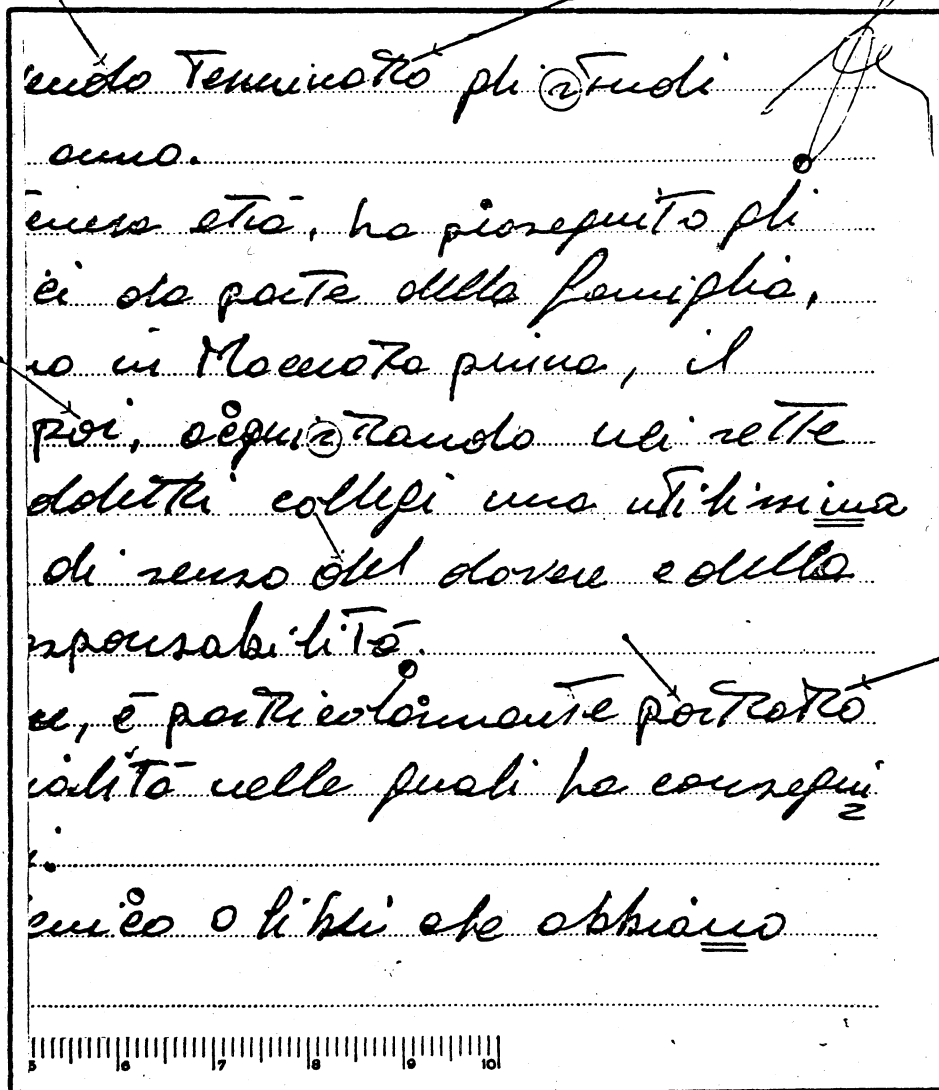 endo terminato gli studi
anno.
tenera età, ha proseguito gli
ci da parte della famiglia,
no in Macerata prima, il
poi, acquistando nei sette
ddetti collegi una utilissima
di senso del dovere e della
esponsabilità.
è particolarmente portato
ialità nelle quali ha consegui
enico o libri che abbiano
5 6 7 8 9 10